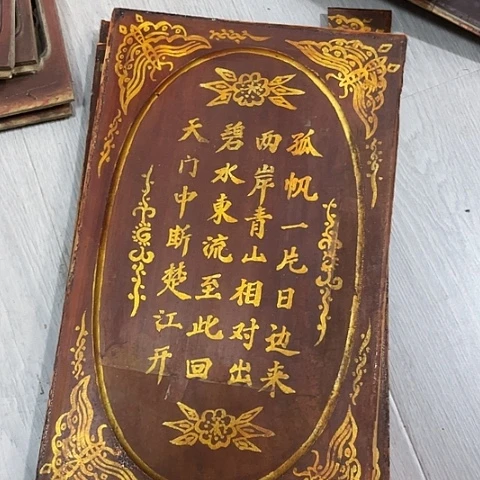 天门中断楚江开
碧水東流至此回
两岸青山相对出
孤帆一片日边来